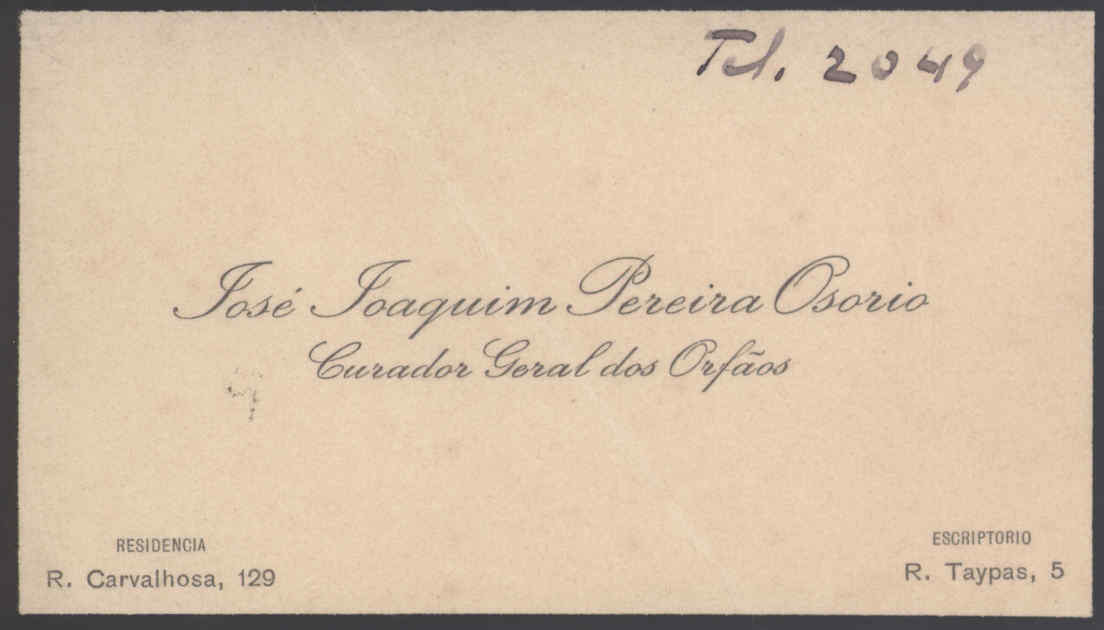 Tel. 2049
José Joaquim Pereira Osorio
Curador Geral dos Orfãos
RESIDENCIA
R. Carvalhosa, 129
ESCRIPTORIO
R. Taypas, 5